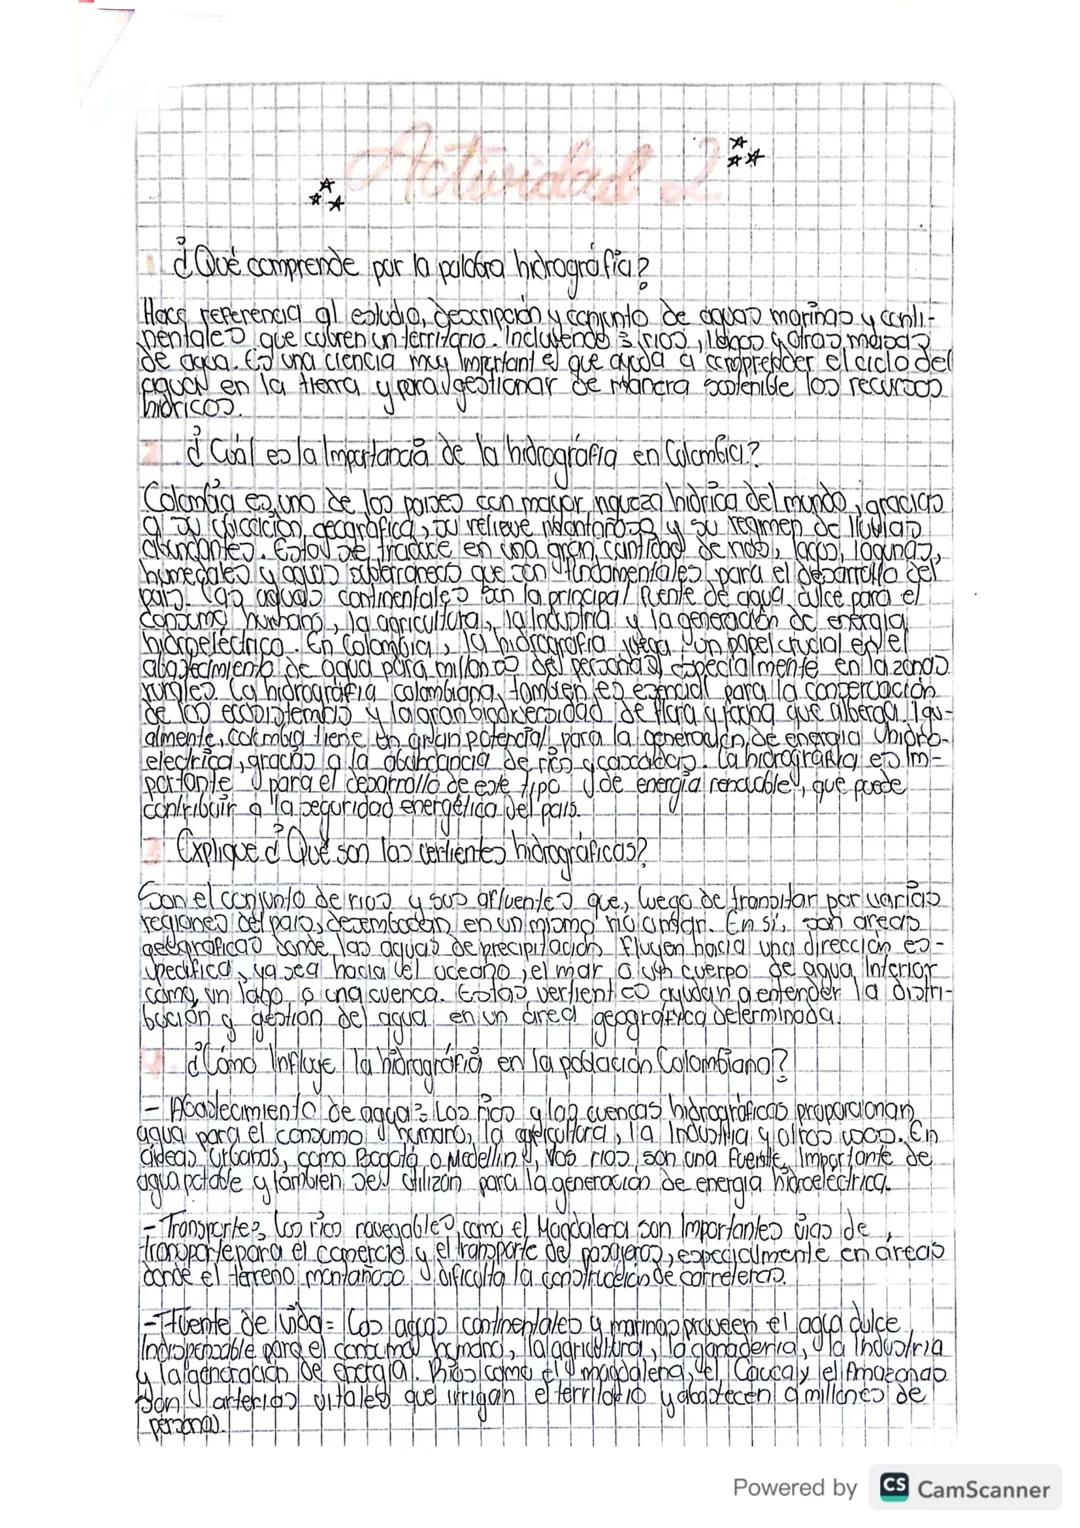 Actividad 2
1 ¿Qué comprende por la palabra hidrográfia?
Hace referencia al estudio, descripción y conjunto de aguas marinas y conti-
nentales que cubren un territorio. Incluyendo: rios, lagos y otras masas
de agua. Es una ciencia muy importante que ayuda a comprender el ciclo del
agua en la tierra y para gestionar de manera sostenible los recursos
hidricos.
2 ¿Cuál es la Importancia de la hidrográfia en Colombia?
Colombia es uno de los paises con mayor riqueza hidrica del mundo, gracias
a su ubicación geográfica, su relieve montañoso y su regimen de lluvias
abundantes. Esto se traduce en una gran cantidad de rios, lagos, lagunas,
humedales y aguas subterraneas que son fundamentales para el desarrollo del
pais. Las aguas continentales son la principal fuente de agua dulce para el
consumo humano, la agricultura, la Industria y la generación de energia
hidroeléctrica. En Colombia, la hidrografia juega un papel crucial en el
abastecimiento de agua para millones de personas, especialmente en la zonas
rurales. La hidrográfia colombiana, tambien es esencial para la conservación
de los ecosistemas y la gran biodiversidad de flora y fauna que alberga. Igu-
almente, colombia tiene un gran potencial para la generación de energia hidro-
electrica, gracias a la abundancia de rios y cascadas. La hidrográfia es im-
portante para el desarrollo de este tipo de energia renovable, que puede
contribuir a la seguridad energética del pais.
3 Explique ¿Qué son las vertientes hidrográficas?
Son el conjunto de rios y sus afluentes que, luego de transitar por varias
regiones del pais, desembocan en un mismo rio o mar. En si, son areas
geográficas donde las aguas de precipitación fluyen hacia una dirección es-
pecifica, ya sea hacia el oceano, el mar o un cuerpo de agua Interior
como un lago o una cuenca. Estas vertientes ayudan a entender la distri-
bución y gestion del agua en un área geográfica determinada.
4 ¿Cómo Influye la hidrográfia en la población Colombiana?
- Abastecimiento de agua: Los rios y las cuencas hidrográficas proporcionan
agua para el consumo humano, la agricultura, la Industria y otros usos. En
áreas Urbanas, como Bogotá o Medellin, los rios son una fuente Importante de
agua potable y tambien se utilizan para la generación de energia hidroeléctrica.
- Transporte: Los rios navegables como el Magdalena son Importantes vias de
transporte para el comercio y el transporte de pasajeros, especialmente en áreas
donde el terreno montañoso dificulta la construcción de carreteras.
- Fuente de vida= Las aguas continentales y marinas proveen el agua dulce
Indispensable para el consumo humano, la agricultura, la ganaderia, la Industria
y la generación de energia. Rios como el magdalena, el Cauca y el Amazonas
son arterias vitales que irrigan el territorio y abastecen a millones de
personas.
Powered by CS CamScanner